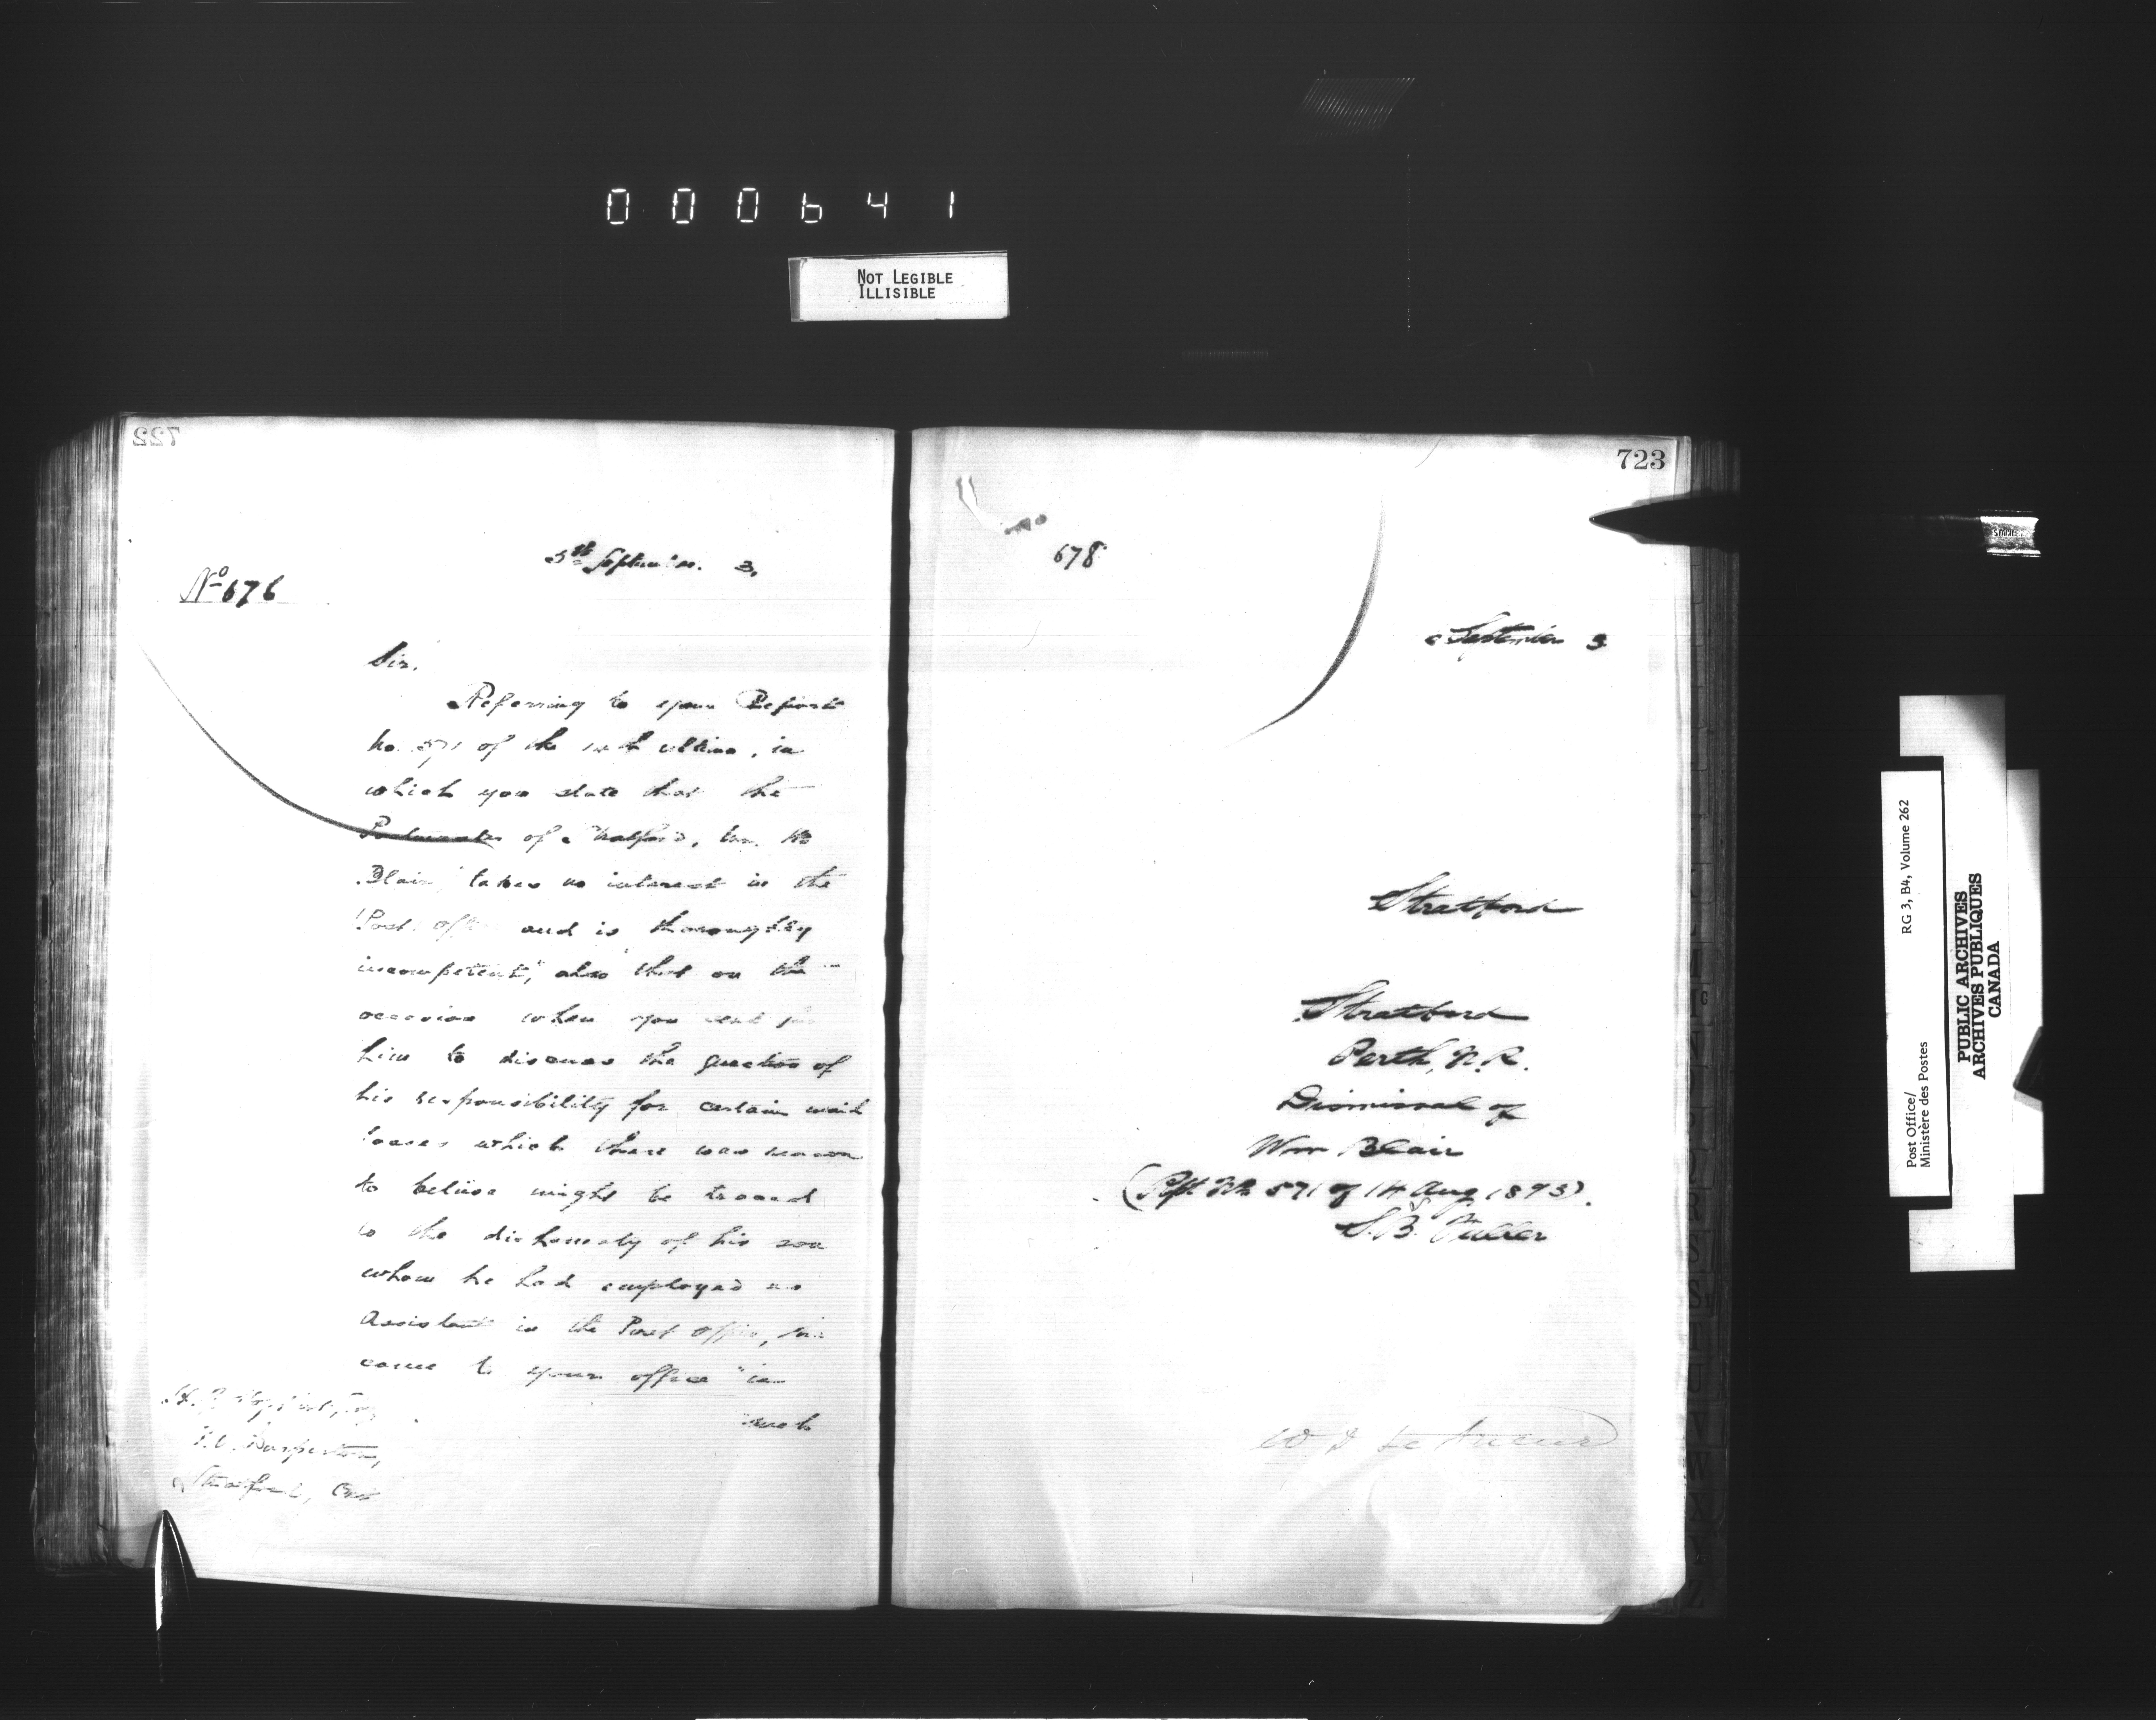 000641
NOT LEGIBLE
ILLISIBLE
722
5th 3.
No 676
Sir.
Referring to your Report
No. 571 of the 14th ultimo, in
which you state that the
Postmaster of Stratford, Mr. Wm
Blair, "takes no interest in the
Post Office and is thoroughly
incompetent," also that on the
occasion when you sent for
him to discuss the question of
his responsibility for certain mail
losses which there was reason
to believe might be traced
to the dishonesty of his son
whom he had employed as
Assistant in the Post Office, he
came to your office "in
such
P.O. Inspector,
Stratford, Ont
723
No
678
September 3
Stratford
Stratford
Perth, N.R.
Dismissal of
Wm Blair
(Rept No 571 of 14 Aug 1893).
S.B. Fuller
W D Le Sueur
Post Office/
Ministère des Postes
RG 3, B4, Volume 262
PUBLIC ARCHIVES
ARCHIVES PUBLIQUES
CANADA